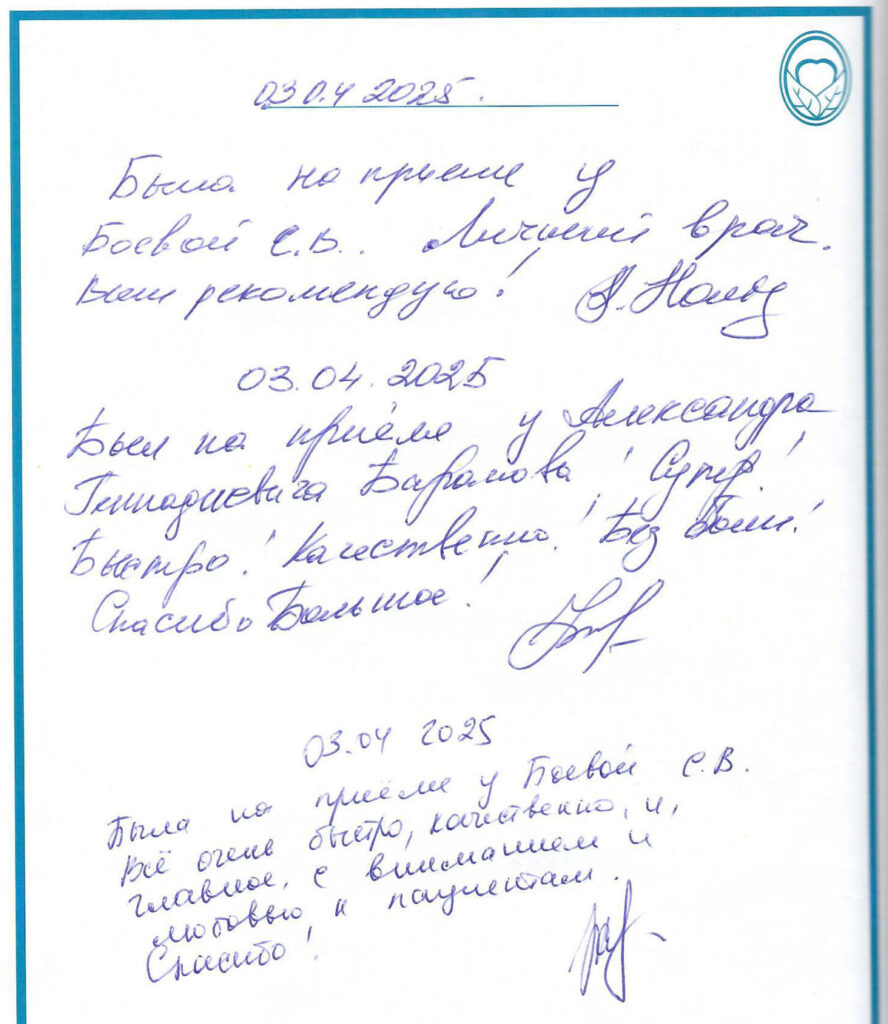 03 0.4 2025.
Была на приеме у
Боевой С.В.. Лучший врач.
Всем рекомендую!
03.04.2025
Был на приёме у Александра
Геннадиевича Баранова! Супер!
Быстро! Качественно! Без боли!
Спасибо Большое!
03.04 2025
Была на приёме у Боевой С.В.
Всё очень быстро, качественно, и,
главное, с вниманием и
любовью к пациентам.
Спасибо!